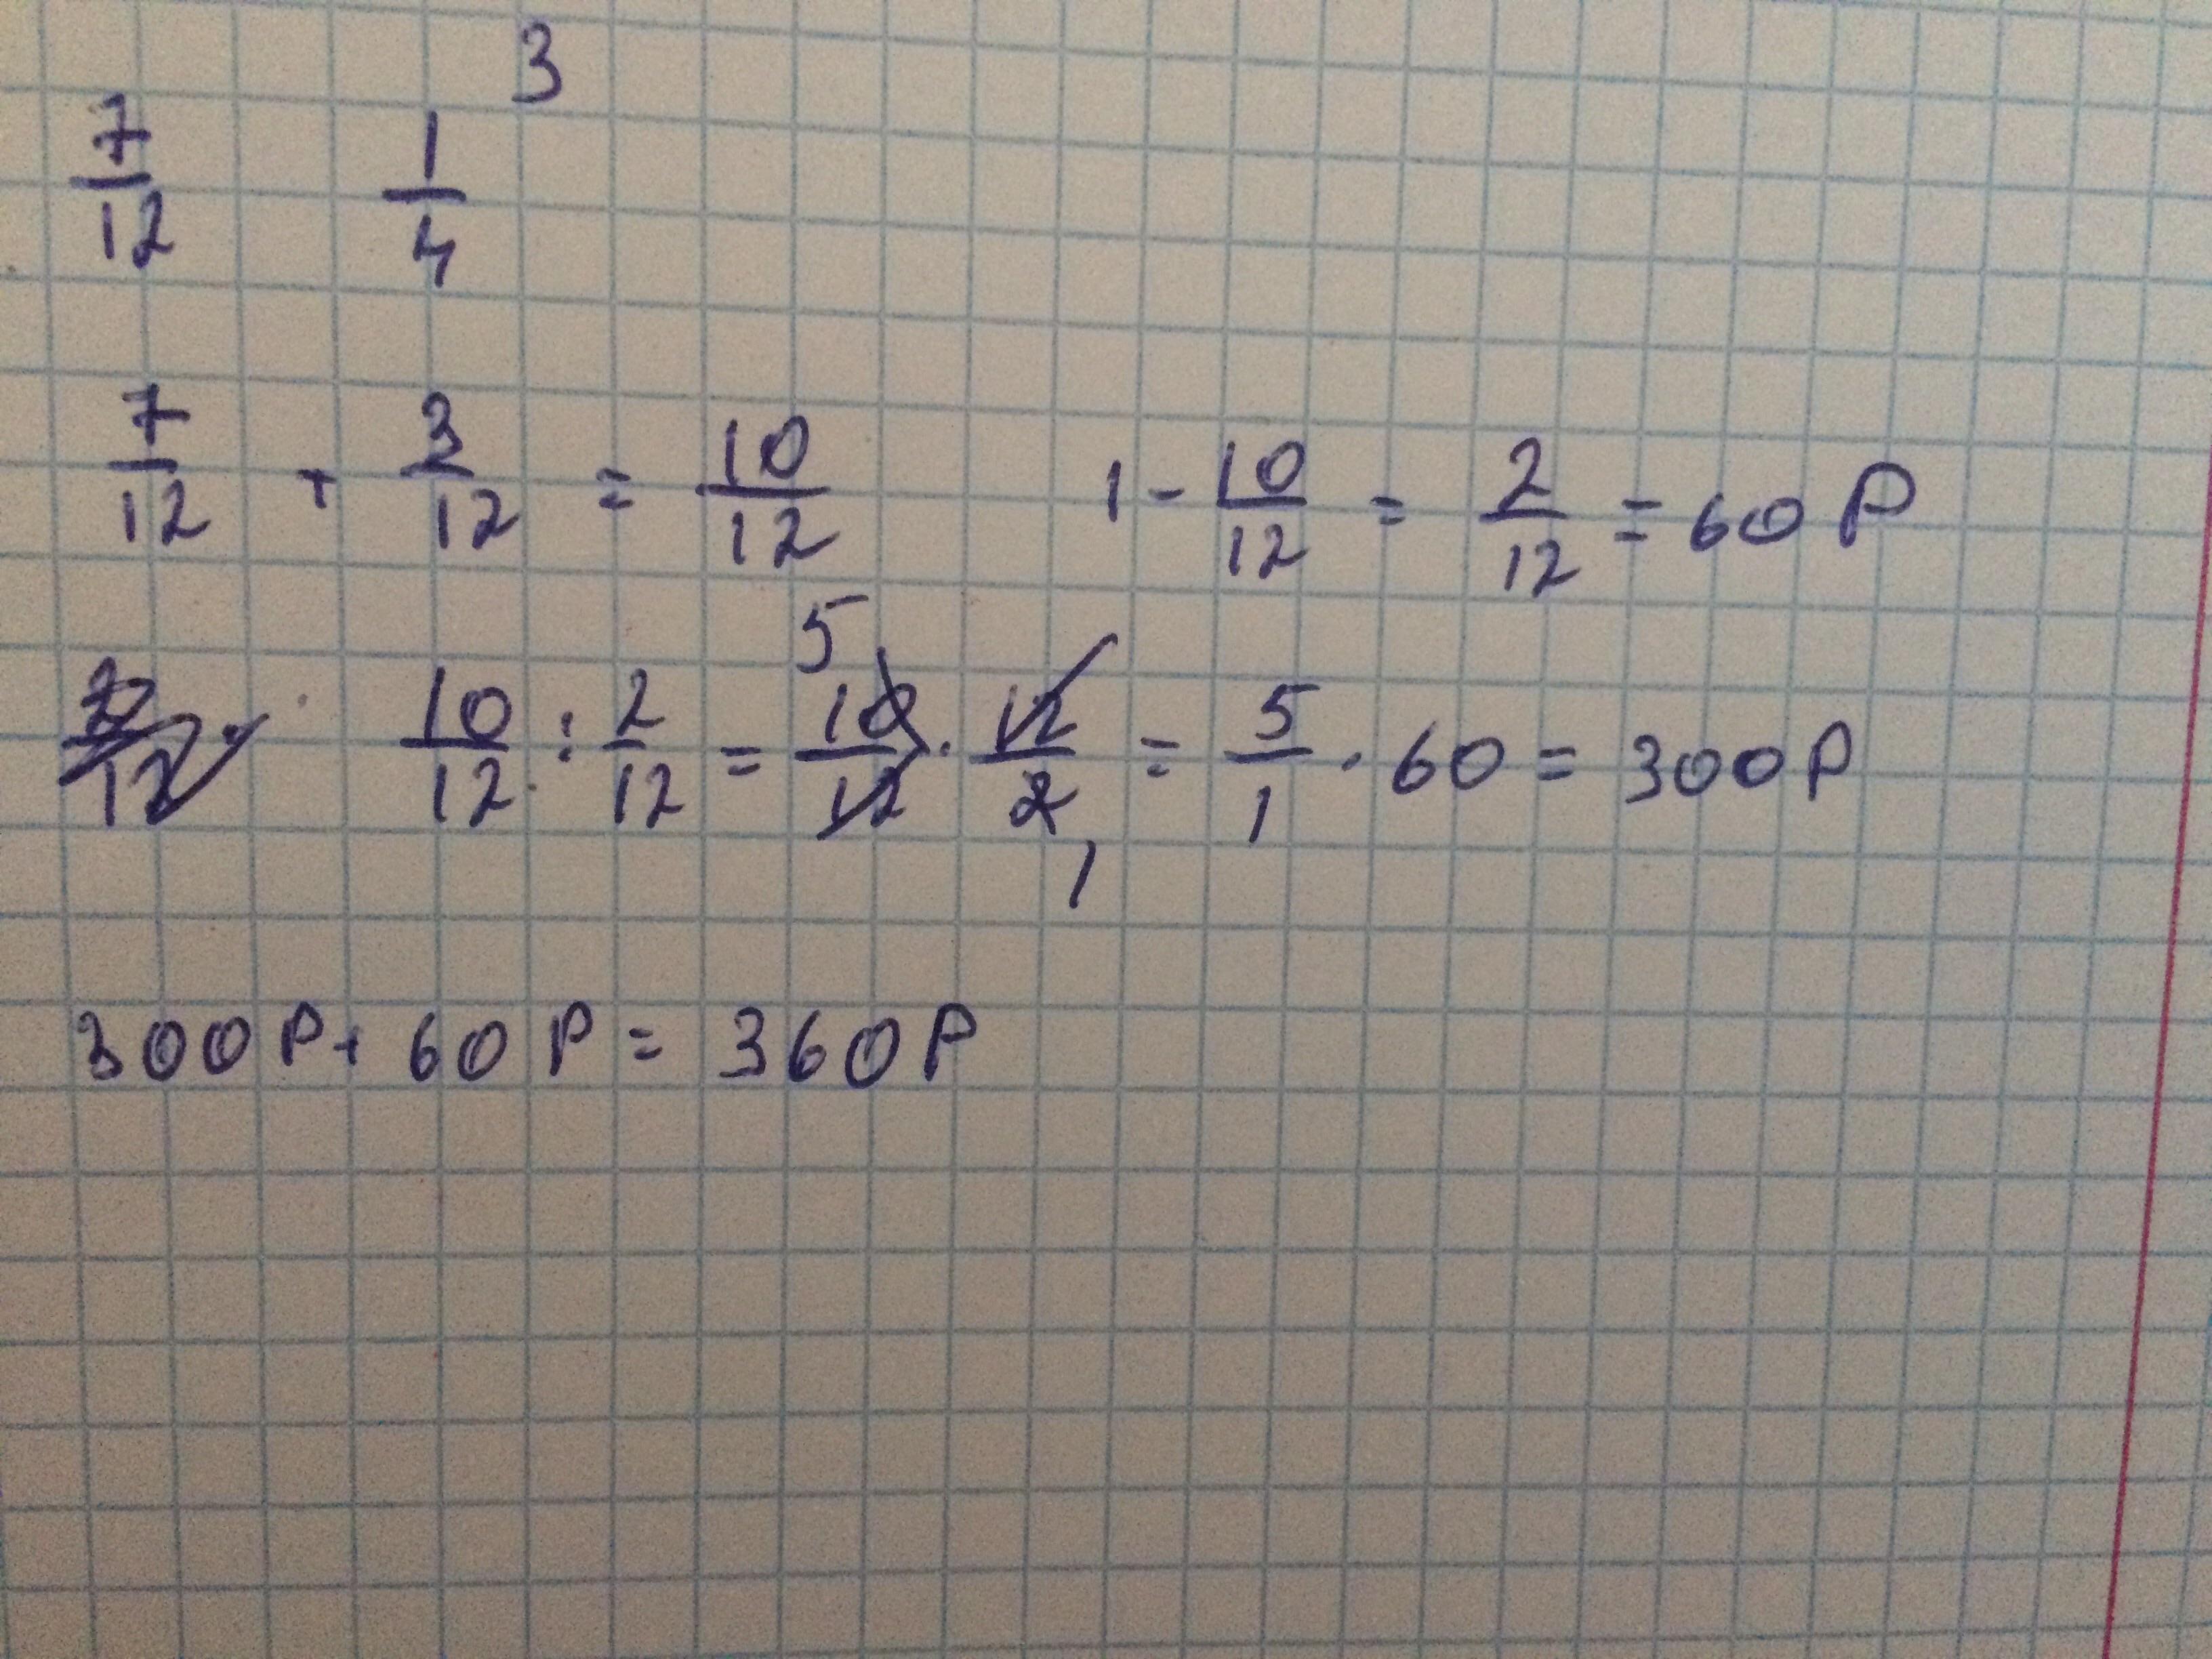 7/12 1/4 3
7/12 + 3/12 = 10/12 1 - 10/12 = 2/12 = 60 Р
10/12 : 2/12 = 5 10/12 · 12/2 1 = 5/1 · 60 = 300 Р
300 Р + 60 Р = 360 Р